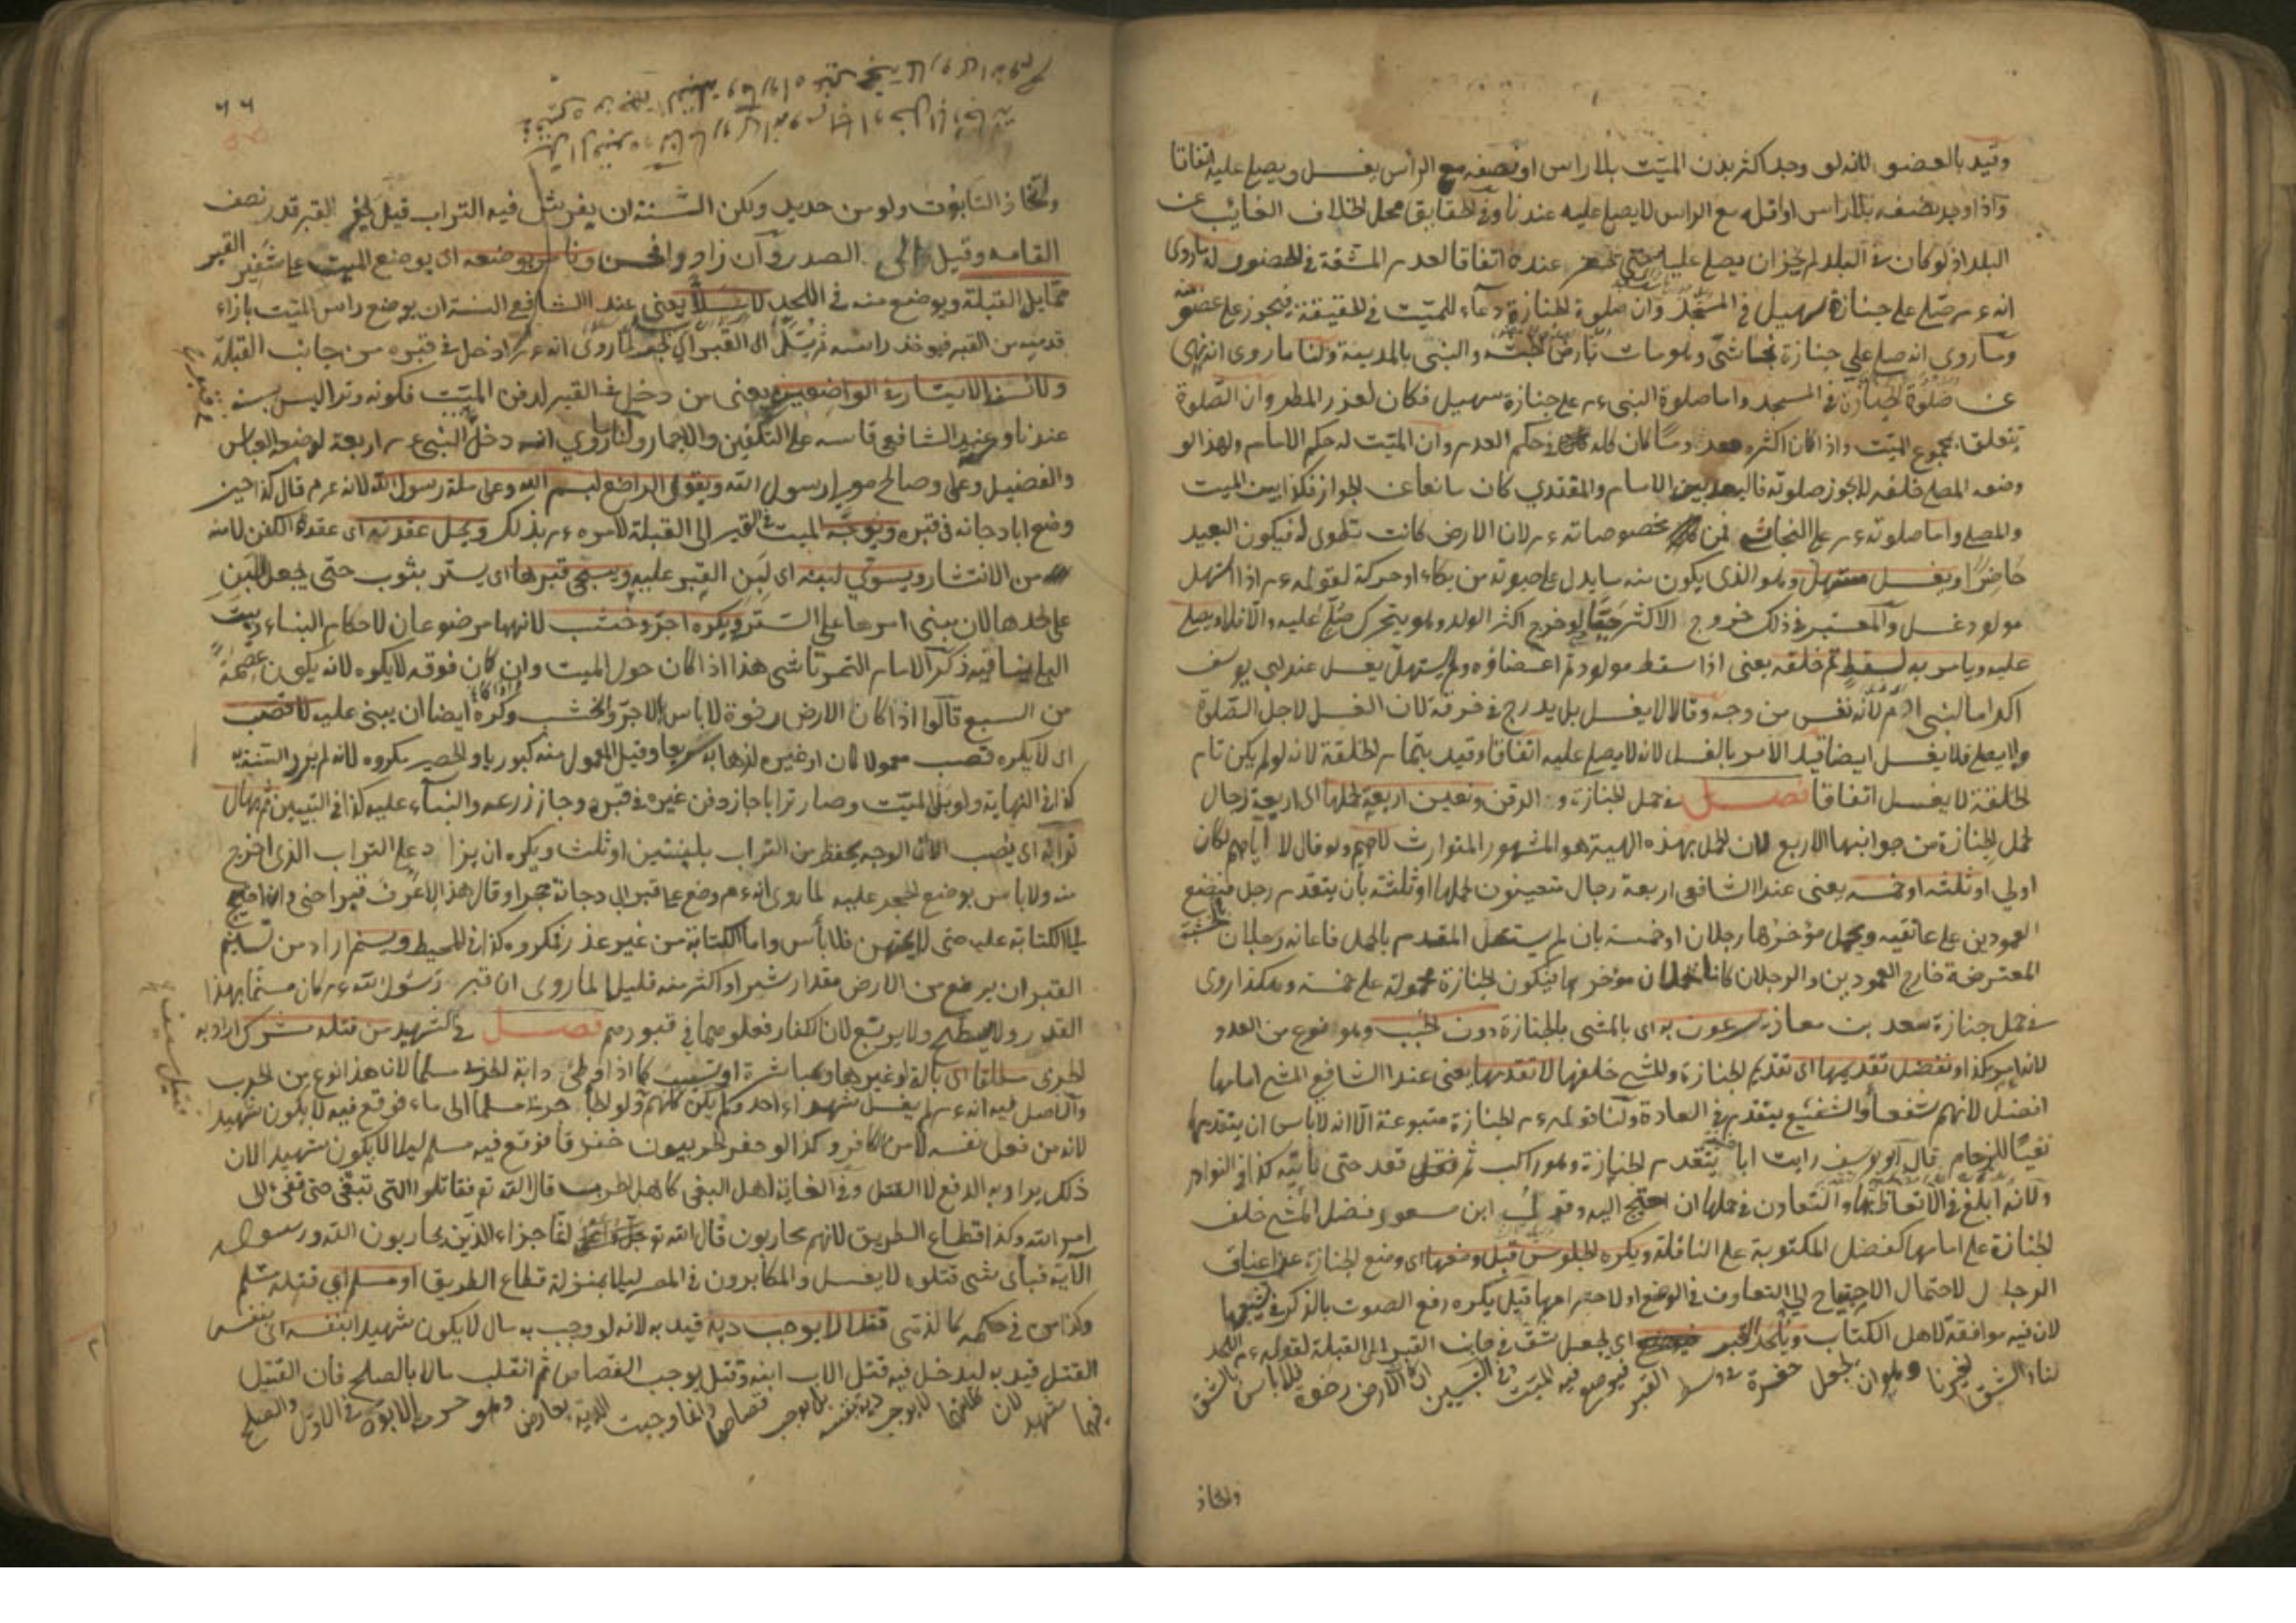 وقيد بالعضو لانه لو وجد اكثر بدن الميت بلا راس او نصفه مع الراس يغسل ويصلى عليه اتفاقا
واذا وجد نصفه بلا راس او اقله مع الراس لا يصلى عليه عندنا وفي الحقايق محل الخلاف الغائب عن
البلد اذ لو كان في البلد لم يجز ان يصلى عليه حتى يحضر عنده اتفاقا لعدم المشقة في الحضور له ما روى
انه عم صلى على جنازة سهيل في المسجد وان صلوة الجنازة دعاء للميت في الحقيقة فيجوز على عضو
وما روى انه صلى على جنازة نجاشى وهو مات بارض الحبشة والنبي بالمدينة ولنا ما روى انه نهى
عن صلوة الجنازة في المسجد واما صلوة النبي عم على جنازة سهيل فكان لعذر المطر وان الصلوة
تتعلق بمجموع الميت واذا كان اكثره معدوما كان كله في حكم العدم وان الميت له حكم الامام ولهذا لو
وضعه المصلى خلفه لا يجوز صلوته فالبعد بين الامام والمقتدي كان مانعا عن الجواز فكذا بين الميت
والمصلى واما صلوته عم على النجاشى فمن مخصوصاته عم لان الارض كانت تطوى له فيكون البعيد
حاضرا ويغسل مستهل وهو الذى يكون منه ما يدل على حيوته من بكاء او حركة لقوله عم اذا استهل
مولود غسل والمعتبر في ذلك خروج الاكثر حتى لو خرج اكثر الولد وهو يتحرك صلى عليه والا فلا ويصلى
عليه ويامر به لسقط تم خلقه يعنى اذا سقط مولود تم اعضاؤه ولم يستهل يغسل عند ابي يوسف
اكراما لبنى ادم لانه نفس من وجه وقالا لا يغسل بل يدرج في خرقة لان الغسل لاجل الصلوة
ولا يصلى فلا يغسل ايضا قيد الامر بالغسل لانه لا يصلى عليه اتفاقا وقيد بتمام الخلقة لانه لو لم يكن تام
الخلقة لا يغسل اتفاقا فصل في حمل الجنازة والدفن وتعيين اربعة لحملها الى اربعة رجال
لحمل الجنازة من جوانبها الاربع لان الحمل بهذه الهيئة هو المشهور المتوارث
اولى او ثلثه او خمسه يعنى عند الشافعى اربعة رجال متعينون لحملها او ثلثة بان يتقدم رجل فيضع
العمودين على عاتقيه ويحمل مؤخرها رجلان او خمسة بان لم يستقل المقدم بالحمل فاعانه رجلان
المعترضة خارج العمودين والرجلان كانا يحملان مؤخرها فيكون الجنازة محمولة على خمسة وهكذا روى
في حمل جنازة سعد بن معاذ ويسرعون به اى بالمشى بالجنازة دون الخبب وهو نوع من العدو
او نفضل تقديمها اى تقديم الجنازة والمشى خلفها لا تقدمها يعنى عند الشافعى المشى امامها
افضل لانهم شفعاء والشفيع يتقدم في العادة ولنا قوله عم الجنازة متبوعة الا انه لا باس ان يتقدمها
نفيا للزحام قال ابو يوسف رايت ابا حنيفة يتقدم الجنازة وهو راكب ثم يقعد حتى يأتيه كذا في النوادر
ولانه ابلغ في الاتعاظ بها والتعاون في حملها ان احتيج اليه وقول ابن مسعود فضل المشى خلف
الجنازة على امامها كفضل المكتوبة على النافلة ويكره الجلوس قبل وضعها اى وضع الجنازة عن اعناق
الرجال لاحتمال الاحتياج الى التعاون في الوضع او لاحترامها قيل يكره رفع الصوت بالذكر في تشييعها
لان فيه موافقة لاهل الكتاب ويلحد القبر اى يجعل شق في جانب القبر الى القبلة لقوله عم اللحد
لنا والشق لغيرنا وهو ان يجعل حفرة في وسط القبر فيوضع فيه الميت وفي التبيين ان كان الارض رخوة فلا باس بالشق
واتخاذ
٦٦
واتخاذ التابوت ولو من حديد ولكن السنة ان يفرش فيه التراب قيل يحفر القبر قدر نصف
القامه وقيل الى الصدر وان زاد وافحسن ونامر بوضعه اى بوضع الميت على شفير القبر
مقابل القبلة ويوضع منه في اللحد لا سلا يعنى عند الشافعى السنة ان يوضع راس الميت بازاء
قدميه من القبر فيوخذ راسه ثم يسل الى القبر لما روى انه عم ادخل في قبره من جانب القبلة
ولا نسن الايتار في الواضعين يعنى من دخل في القبر لدفن الميت فكونه وترا ليس بسنة
عندنا وعند الشافعى قاسه على التكفين والاجمار ولنا ما روي انه دخل النبي عم اربعة لوضعه العباس
والفضيل وعلى وصالح مولى رسول الله ويقول الواضع بسم الله وعلى ملة رسول الله لانه عم قال كذا حين
وضع ابا دجانه في قبره ويوجه الميت في القبر الى القبلة لامره عم بذلك ويحل عقدته اى عقدة الكفن لامنه
من الانتشار ويسوي لبنه اى لبن القبر عليه ويسجى قبرها اى يستر بثوب حتى يجعل اللبن
على لحدها لان مبنى امرها على الستر ويكره اجر وخشب لانهما موضوعان لاحكام البناء وبيت
البلى ينافيه ذكر الامام التمرتاشى هذا اذا كان حول الميت وان كان فوقه لا يكره لانه يكون عصمة
من السبع قالوا اذا كان الارض رخوة لا باس بالاجر والخشب وكره ايضا ان يبنى عليه لا قصب
اى لا يكره قصب معمولا كان او غيره وقيل المعمول منه كبوريا والحصير مكروه لانه لم يرد السنة به
كذا في النهاية ولو بلى الميت وصار ترابا جاز دفن غيره في قبره وجاز زرعه والبناء عليه كذا في التبيين ثم يهال
ترابه اى يصب لان الوجه يحفظ من التراب بلبنتين او ثلث ويكره ان يزاد على التراب الذى اخرج
منه ولا باس بوضع الحجر عليه لما روى انه عم وضع على قبر ابى دجانة حجرا وقال هذا لاعرف قبر اخى وان احتيج
الى الكتابة عليه حتى لا يمتهن فلا بأس واما الكتابة من غير عذر فمكروه كذا في المحيط ويسنم اراد من تسنيم
القبر ان يرفع من الارض مقدار شبر او اكثر منه قليلا لما روى ان قبر رسول الله عم كان مسنما بهذا
القدر ولا يسطح ولا يربع لان الكفار فعلوهما في قبورهم فصل في الشهيد من قتله مشرك اراد به
الحربى مطلقا اى بالة او غيرها ومباشرة او تسبيبا كما اذا اوطئ دابة الحربى مسلما لان هذا نوع من الحرب
والاصل فيه انه عم لم يغسل شهداء احد ولم يكن كلهم ولو لجأ حربى مسلما الى ماء فوقع فيه لا يكون شهيدا
لانه من فعل نفسه لا من الكافر وكذا لو حفر الحربيون خندقا فوقع فيه مسلم ليلا لا يكون شهيدا لان
ذلك يراد به الدفع لا القتل وفي الخانية اهل البغى كاهل الحرب قال الله تع فقاتلوا التى تبغى حتى تفئ الى
امر الله وكذا قطاع الطريق لانهم محاربون قال الله انما جزاء الذين يحاربون الله ورسوله
الآية فبأى شئ قتلوه لا يغسل والمكابرون في المصر ليلا بمنزلة قطاع الطريق او مسلم اى قتله مسلم
وكذا من في حكمه كالذمى قتلا لا يوجب دية قيد به لانه لو وجب به مال لا يكون شهيدا بنفسه اى بنفس
القتل قيد به ليدخل فيه قتل الاب ابنه وقتل يوجب القصاص ثم انقلب مالا بالصلح فان القتيل
فيهما شهيد لان لا يوجب دية بنفسه بل يوجب قصاصا وانما وجبت الدية بعارض وهو حرمة الابوة في الاول والصلح